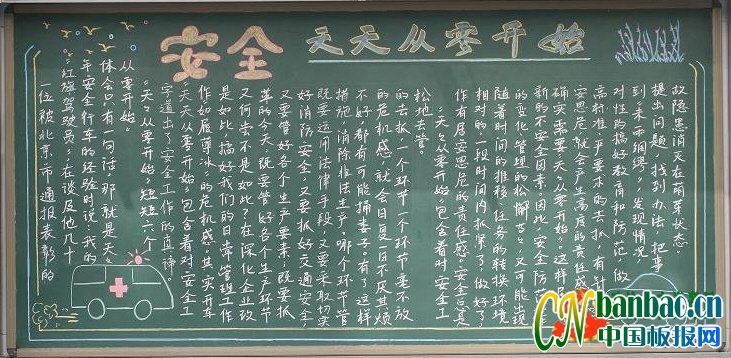 安全 天天从零开始
一位被北京市通报表彰的
"红旗驾驶员",在谈及他几十
年安全行车的经验时说:"我的
体会只有一句话,那就是天天
从零开始。"
"天天从零开始",短短六个
字道出了安全工作的真谛。
"天天从零开始"包含着对安全工
作如履薄冰的危机感。其实,开车
是如此,搞好我们的日常管理工作
又何尝不是如此?在深化企业改
革的今天,既要管好各个生产环节
又要管好各个生产要素,既要抓
好消防安全,又要抓好交通安全,
既要运用法律手段,又要采取切实
措施,消除非法生产。哪个环节管
不好都有可能捅娄子。有了这样
的危机感,就会日复一日不厌其烦
的去抓一个环节一个环节毫不放
松地去管。
"天天从零开始"包含着对安全工
作有居安思危的责任感。安全只是
相对的一段时间内抓紧了,做好了,
随着时间的推移,任务的转换,环境
的变化,管理的松懈等,又可能出现
新的不安全因素。因此,安全防
确实需要天天从零开始。这样
安思危,就会产生高度的责任感
高标准严要求的去抓,有
对性的搞好教育和防范,做
到"未雨绸缪"。发现情况,
提出问题,找到办法,把事
故隐患消灭在萌芽状态。
CN banbao.cn
中国板报网